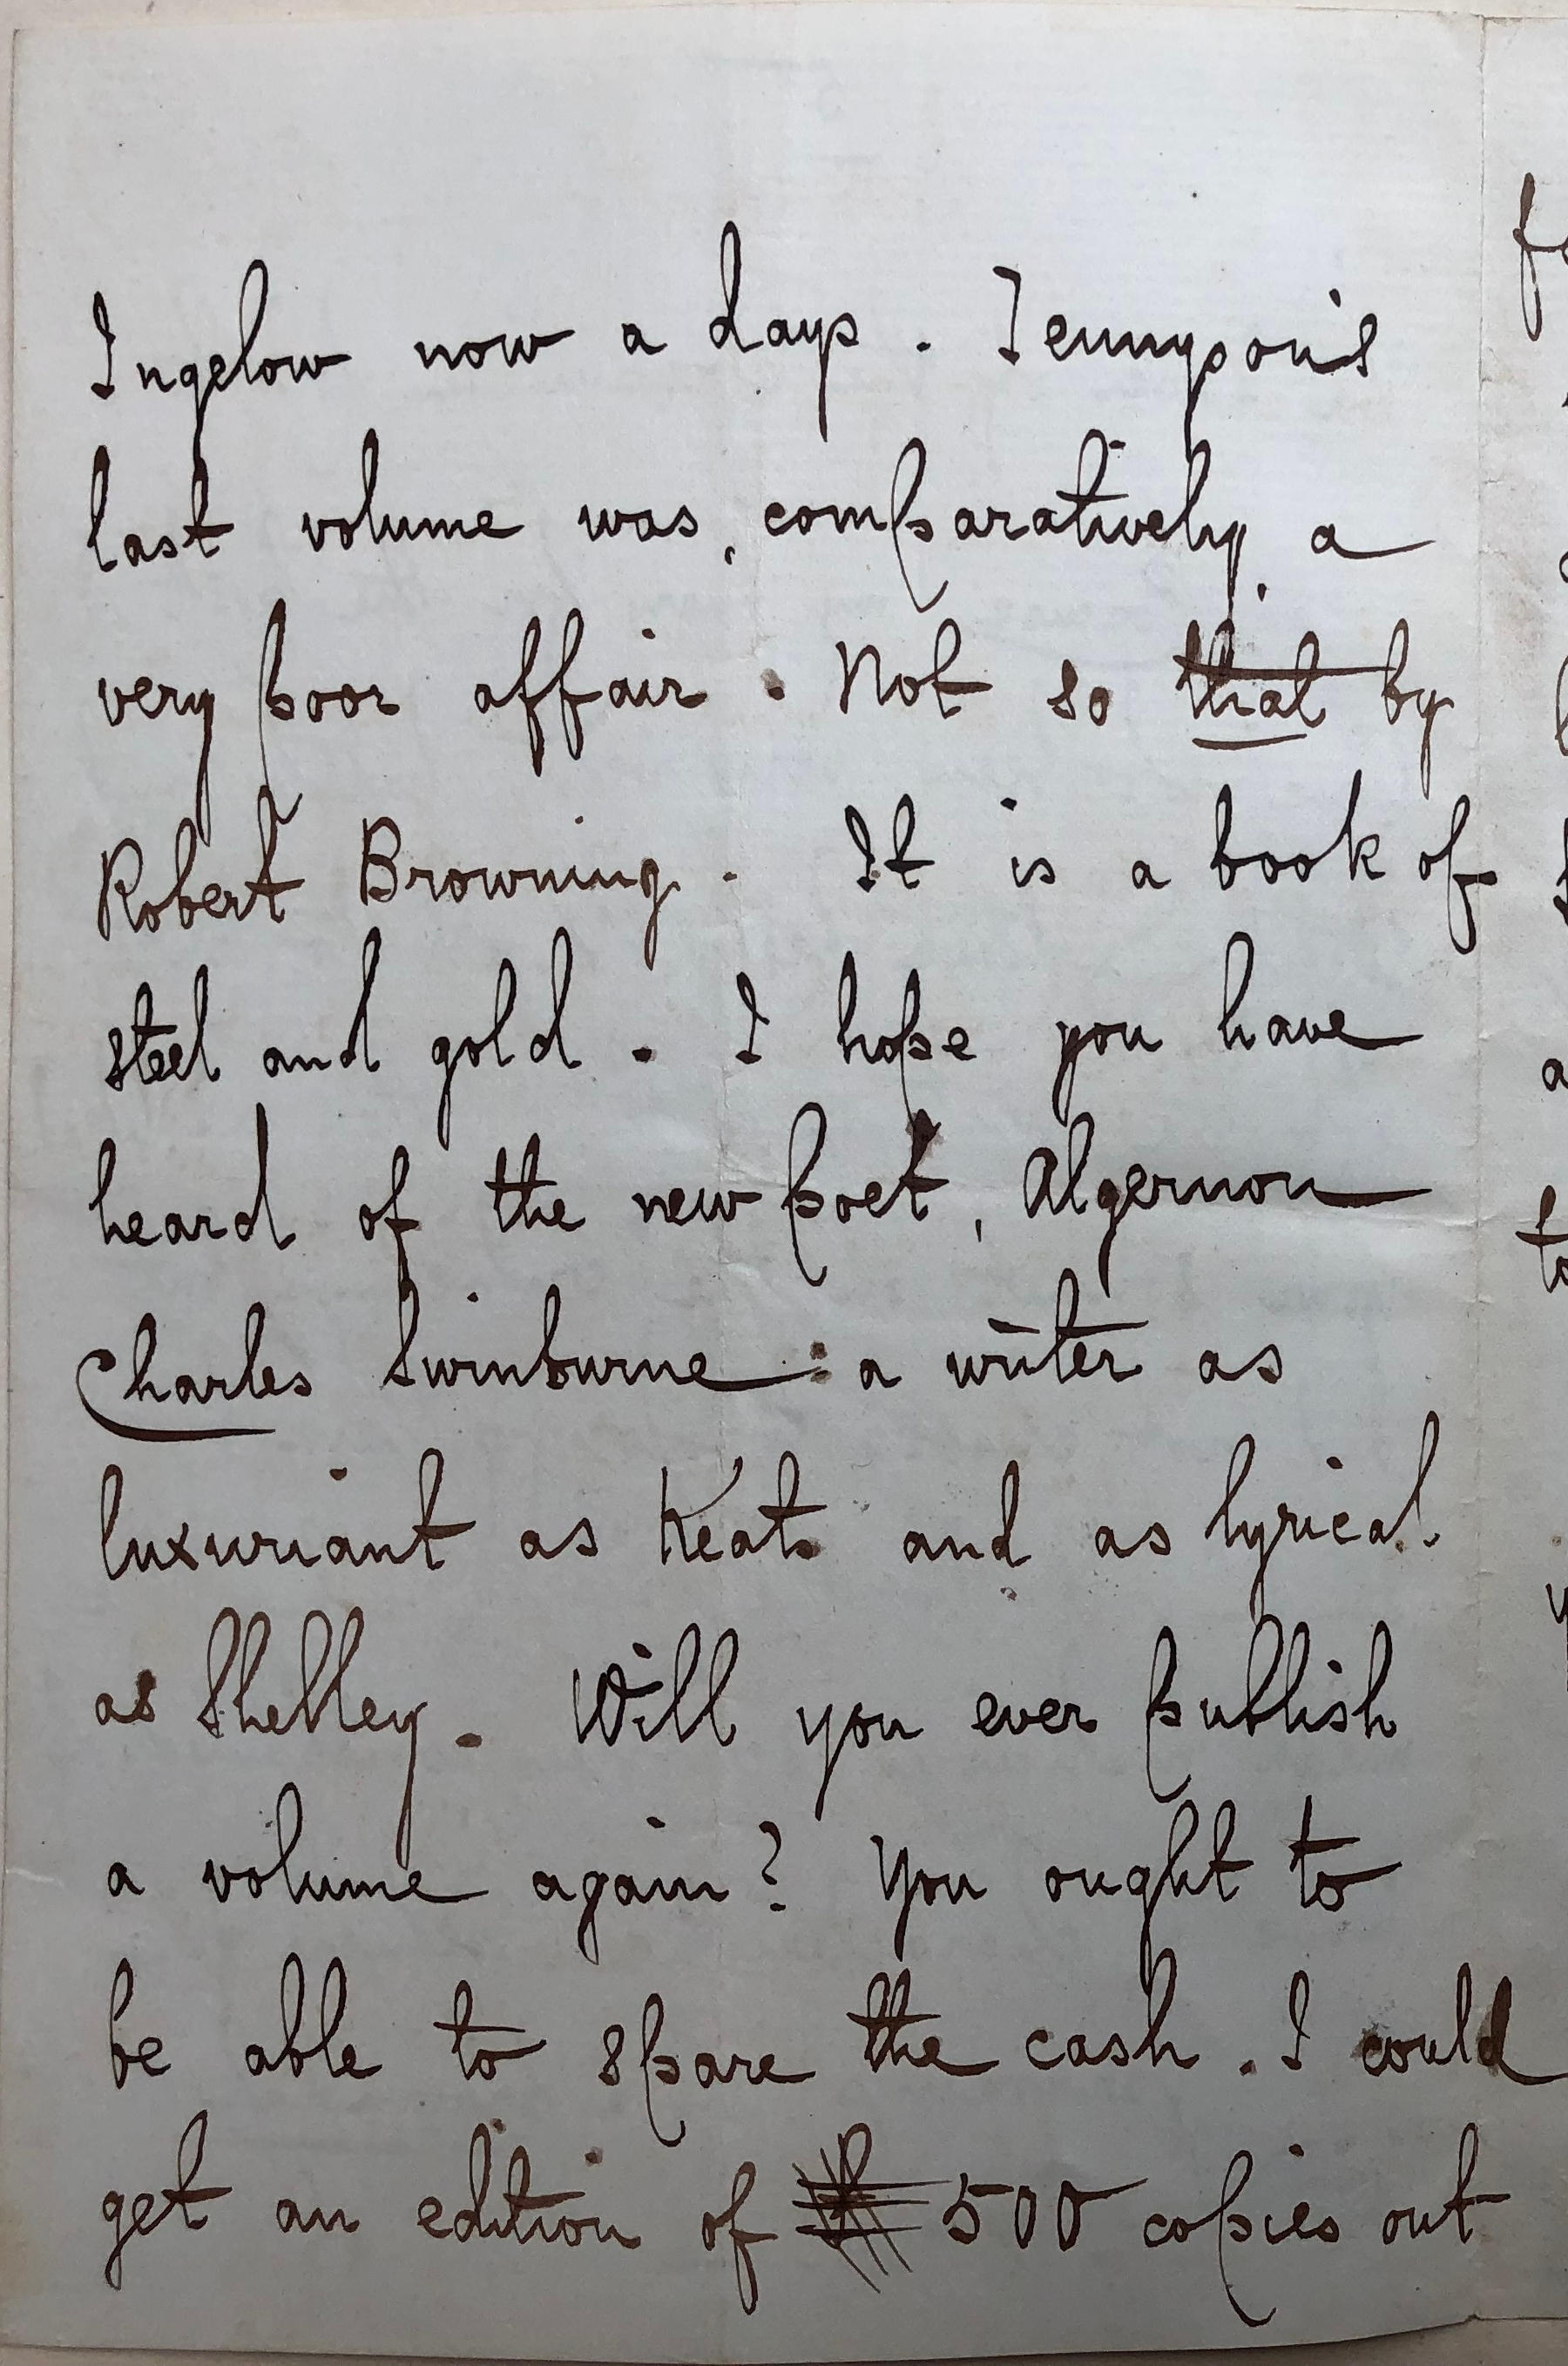 Ingelow now a days. Tennyson's
last volume was, comparatively, a
very poor affair. Not so that by
Robert Browning. It is a book of
steel and gold. I hope you have
heard of the new poet, Algernon
Charles Swinburne: a writer as
luxuriant as Keats and as lyrical
as Shelley. Will you ever publish
a volume again? You ought to
be able to spare the cash. I could
get an edition of 500 copies out